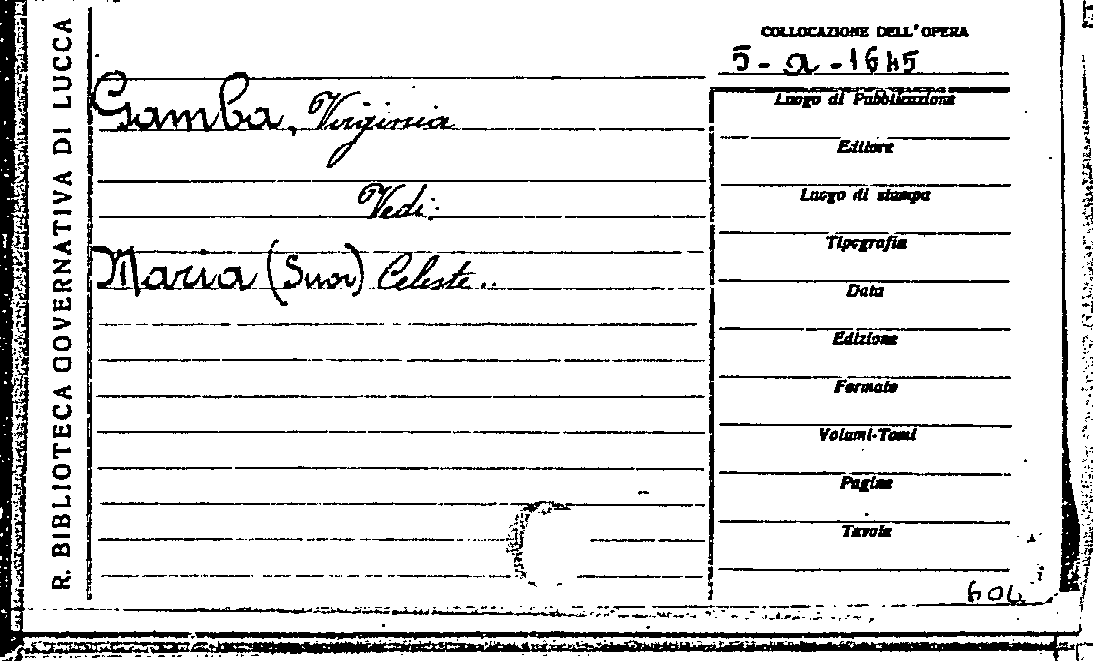 R. BIBLIOTECA GOVERNATIVA DI LUCCA
COLLOCAZIONE DELL'OPERA
5-a-1645
Gamba, Virginia
Vedi:
Maria (Suor) Celeste..
Luogo di Pubblicazione
Editore
Luogo di stampa
Tipografia
Data
Edizione
Formato
Volumi-Tomi
Pagine
Tavole